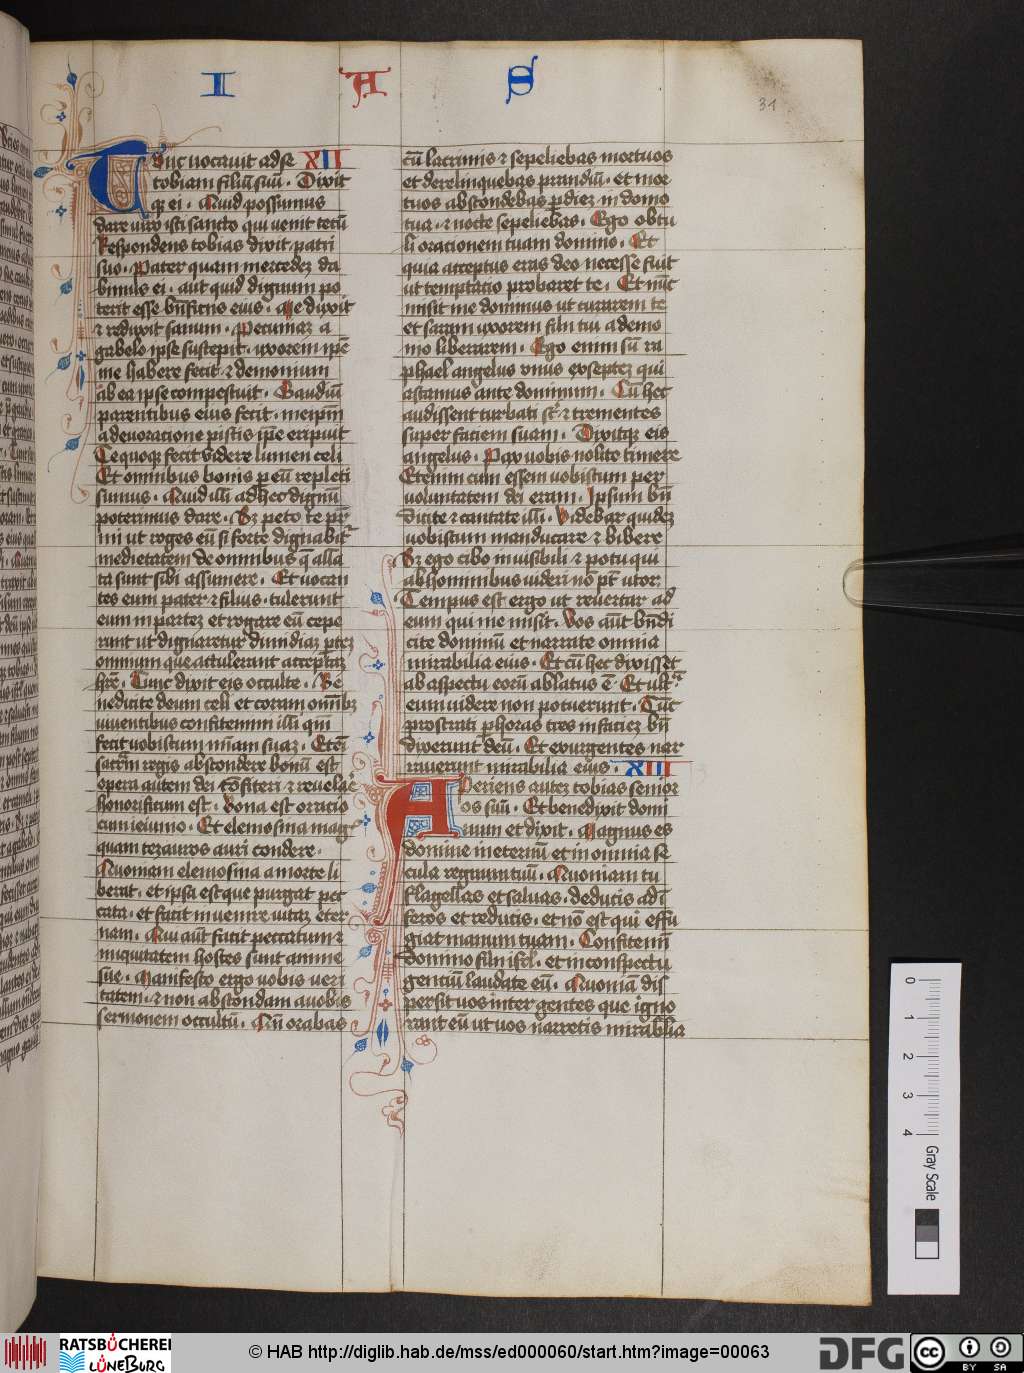 I A S
31
Tunc uocauit ad se XII
tobiam filiū suū . Dixit
q̨ ei . Quid possumus
dare uiro isti sancto qui uenit tecū
Respondens tobias dixit patri
suo . Pater quam mercedeʒ da
bimus ei . aut quid dignum po
terit esse bn̄ficijs eius . Me duxit
⁊ reduxit sanum . Pecuniaʒ a
gabelo ipse suscepit . uxorem ip̄e
me habere fecit . ⁊ demonium
ab ea ipse compescuit . Gaudiū
parentibus eius fecit . meip̄m
a deuoratione piscis ip̄e eripuit
Te quoqʒ fecit videre lumen celi
Et omnibus bonis p eū repleti
sumus . Quid illi ad hec dignū
poterimus dare . Sʒ peto te pr̄
mi ut roges eū si forte dignabit̄
medietatem de omnibus q̄ alla
ta sunt sibi assumere . Et uocan
tes eum pater ⁊ filius . tulerunt
eum in parteʒ et rogare eū cepe
runt ut dignaretur dimidiaʒ p̄teʒ
omnium que attulerant acceptaʒ
hr̄e . Tunc dixit eis occulte . Be
nedicite deum celi et coram omībʒ
viuentibus confitemini illi qm̄
fecit uobiscum mīam suaʒ . Etei
sacr̄m regis abscondere bonū est
opera autem dei cōfiteri ⁊ reuelar̄e
honorificum est . Bona est oratio
cum ieiunio . Et elemosina mag̉
quam tezauros auri condere .
Quoniam elemosina a morte li
berat . et ipsa est que purgat pec
cata . et facit inuenire uitaʒ eter
nam . Qui aūt faciūt peccatum ⁊
iniquitatem hostes sunt anime
sue . Manifesto ergo uobis ueri
tatem . ⁊ non abscondam a uobis
sermonem occultū . Qn̄ orabas
cū lacrimis ⁊ sepeliebas mortuos
et derelinquebas prandiū . et mor
tuos abscondebas p dieʒ in domo
tua . ⁊ nocte sepeliebas . Ego obtu
li orationem tuam domino . Et
quia acceptus eras deo necesse fuit
ut temptatio probaret te . Et nūc
misit me dominus ut curarem te
et saram uxorem filii tui a demo
nio liberarem . Ego enim sū ra
phael angelus vnus ex septeʒ qui
astamus ante dominum . Cū hec
audissent turbati st̄ ⁊ trementes
super faciem suam . Dixitqʒ eis
angelus . Pax uobis nolite timere
Etenim cum essem uobiscum per
voluntatem dei eram . Ipsum bn̄
dicite ⁊ cantate illi . Videbar quideʒ
uobiscum manducare ⁊ bibere
Sʒ ego cibo inuisibili ⁊ potu qui
ab hominibus uideri nō pt̄ utor .
Tempus est ergo ut reuertar ad
eum qui me misit . Vos aūt bn̄di
cite dominū et narrate omnia
mirabilia eius . Et cū hec dixisset
ab aspectu eorū ablatus ē . Et ult̄ᵃ
eum uidere non potuerunt . Tūc
prostrati p horas tres in facieʒ bn̄
dixerunt deū . Et exurgentes nar
rauerunt mirabilia eius . XIII
Aperiens auteʒ tobias senior
os suū . Et benedixit domi
num et dixit . Magnus es
domine in eternū et in omnia se
cula regnum tuū . Quoniam tu
flagellas et saluas . deducis ad ī
feros et reducis . et nō est qui effu
giat manum tuam . Confitemī
domino filii isr̄l . et in conspectu
gentiū laudate eū . Quoniā dis
persit uos inter gentes que igno
rant eū ut uos narretis mirabilia
0
1
2
3
4
Gray Scale
RATSBÜCHEREI
LÜNEBURG
© HAB http://diglib.hab.de/mss/ed000060/start.htm?image=00063
DFG
cc BY SA